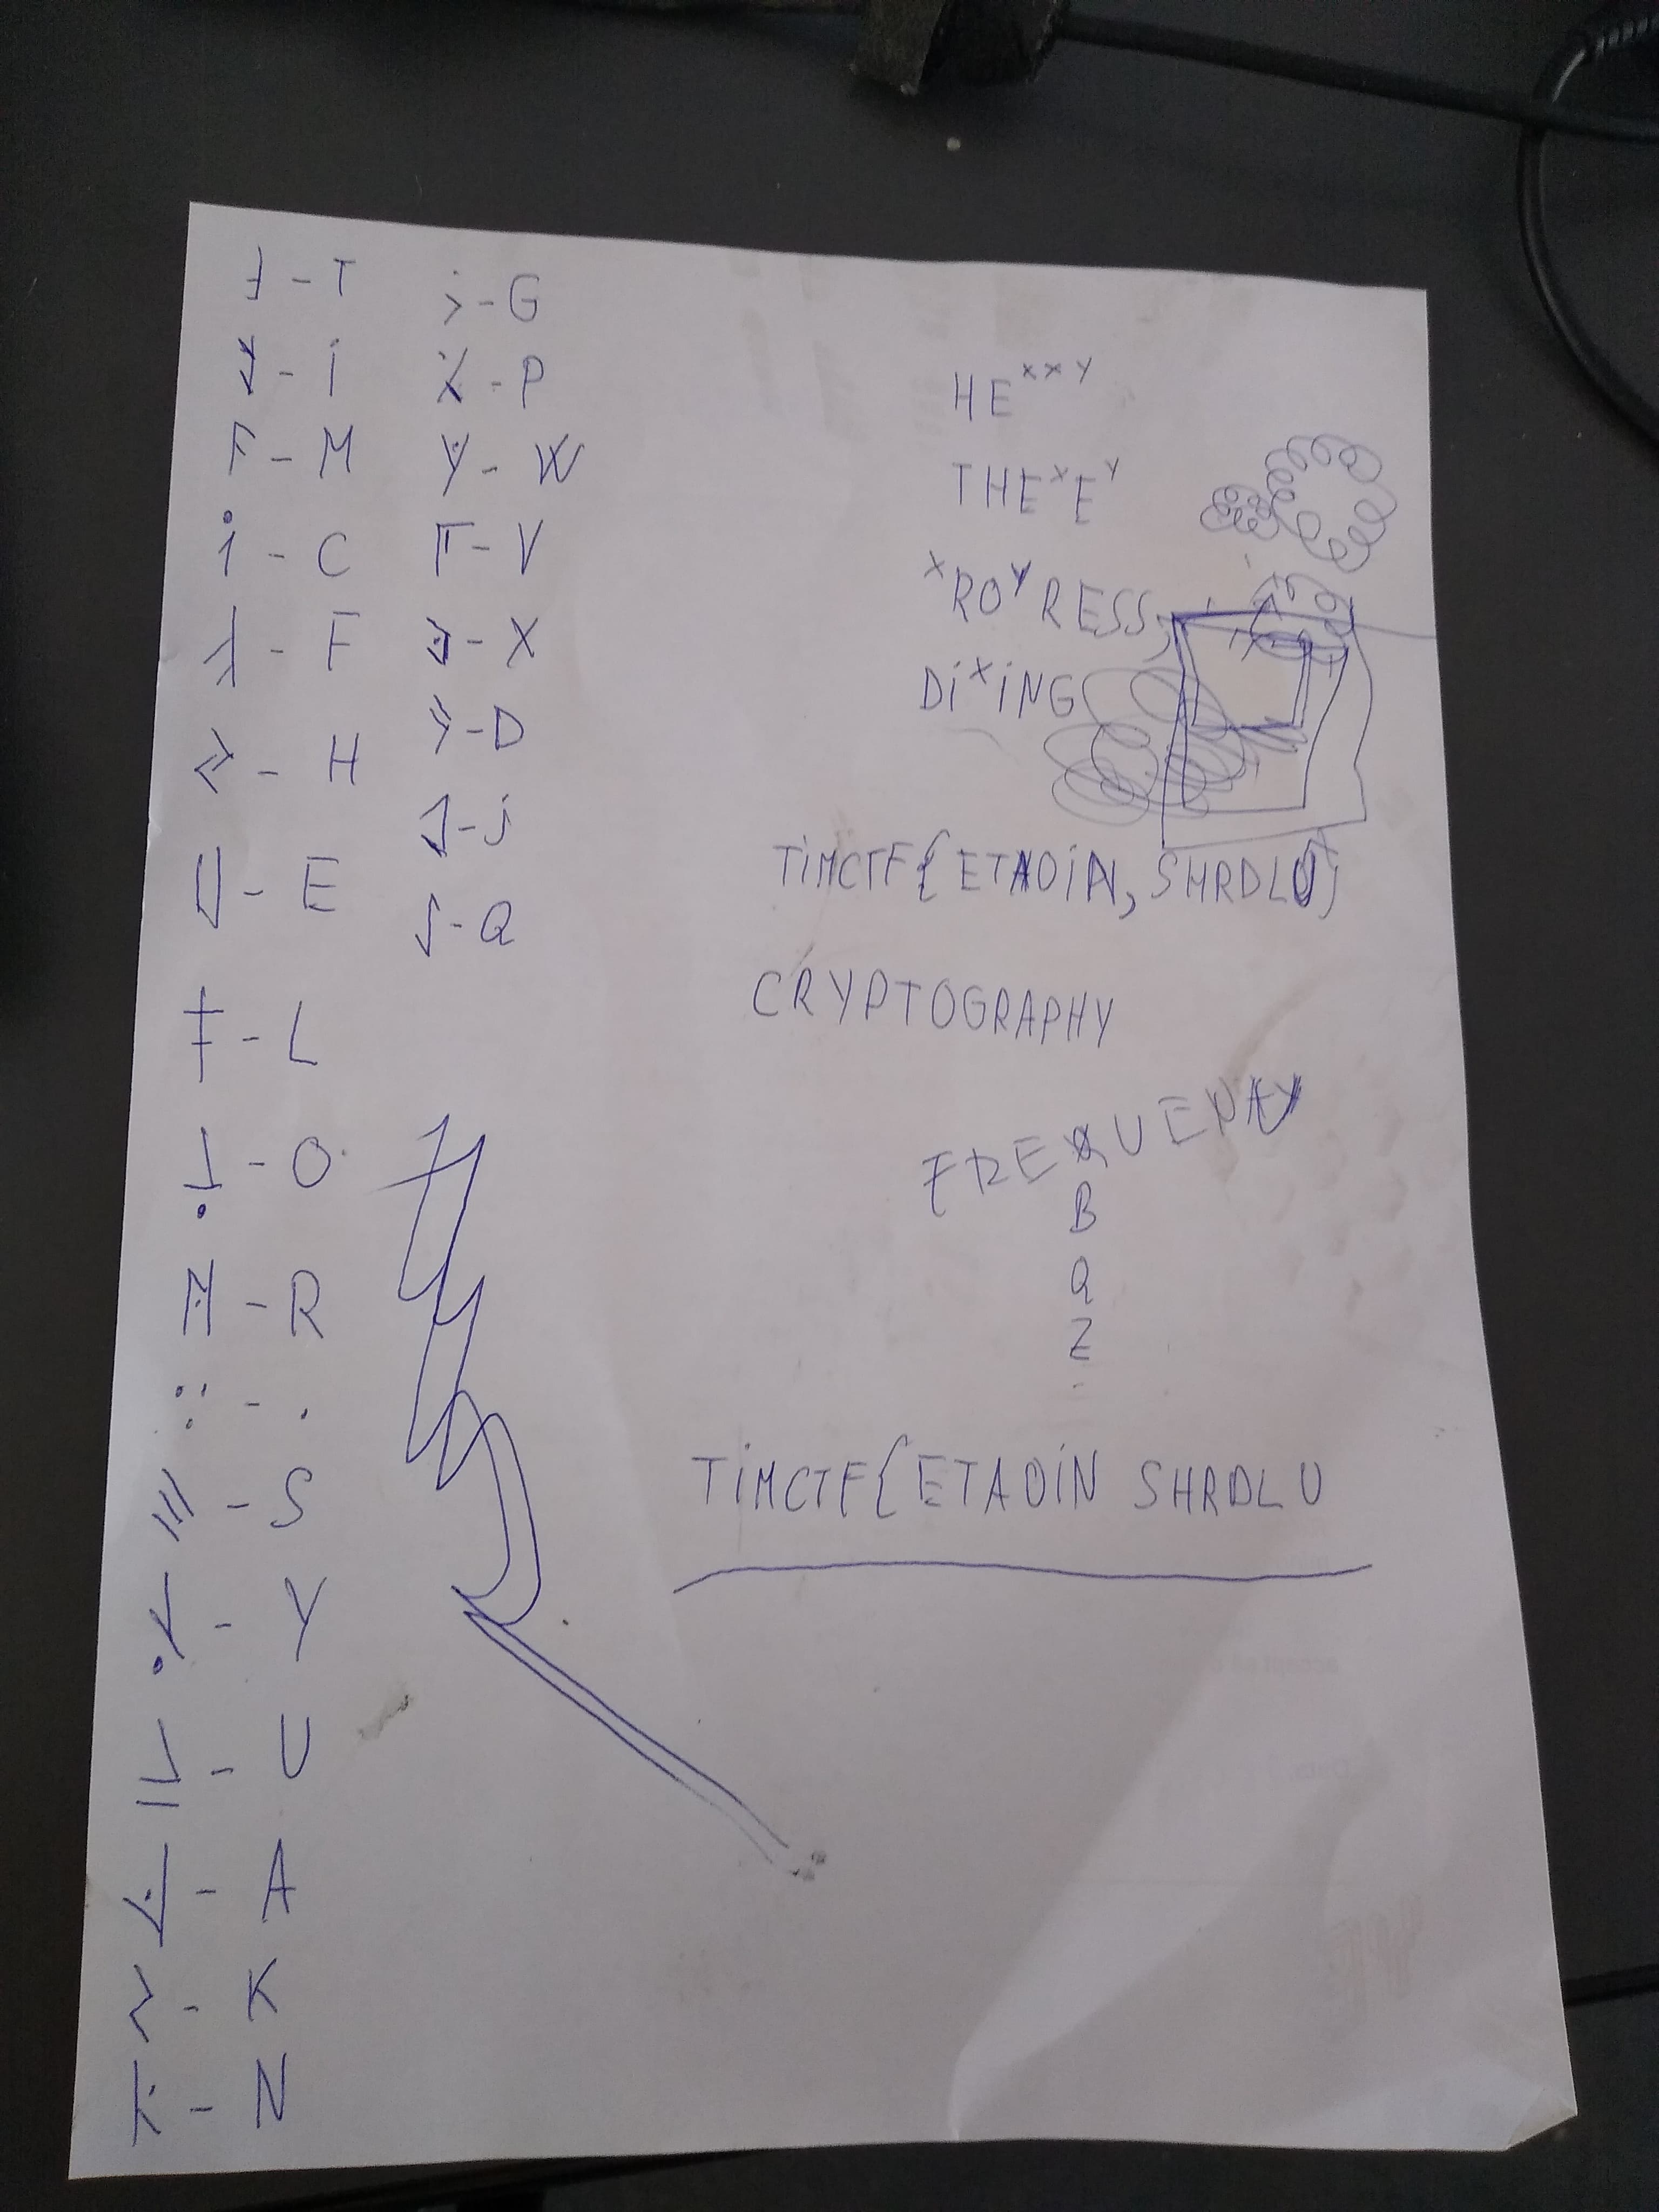 - T
- i
- M
- C
- F
- H
- E
- L
- O
- R
- .
- S
- Y
- U
- A
- K
- N
- G
- P
- W
- V
- X
- D
- j
- Q
HE^XXY
THE^XE^Y
^XRO^YRESS,
Di^XiNG
TiMCTF{ETAOiN, SHRDLU}
CRYPTOGRAPHY
B
Q
Z
TiMCTF{ETAOiN SHRDLU